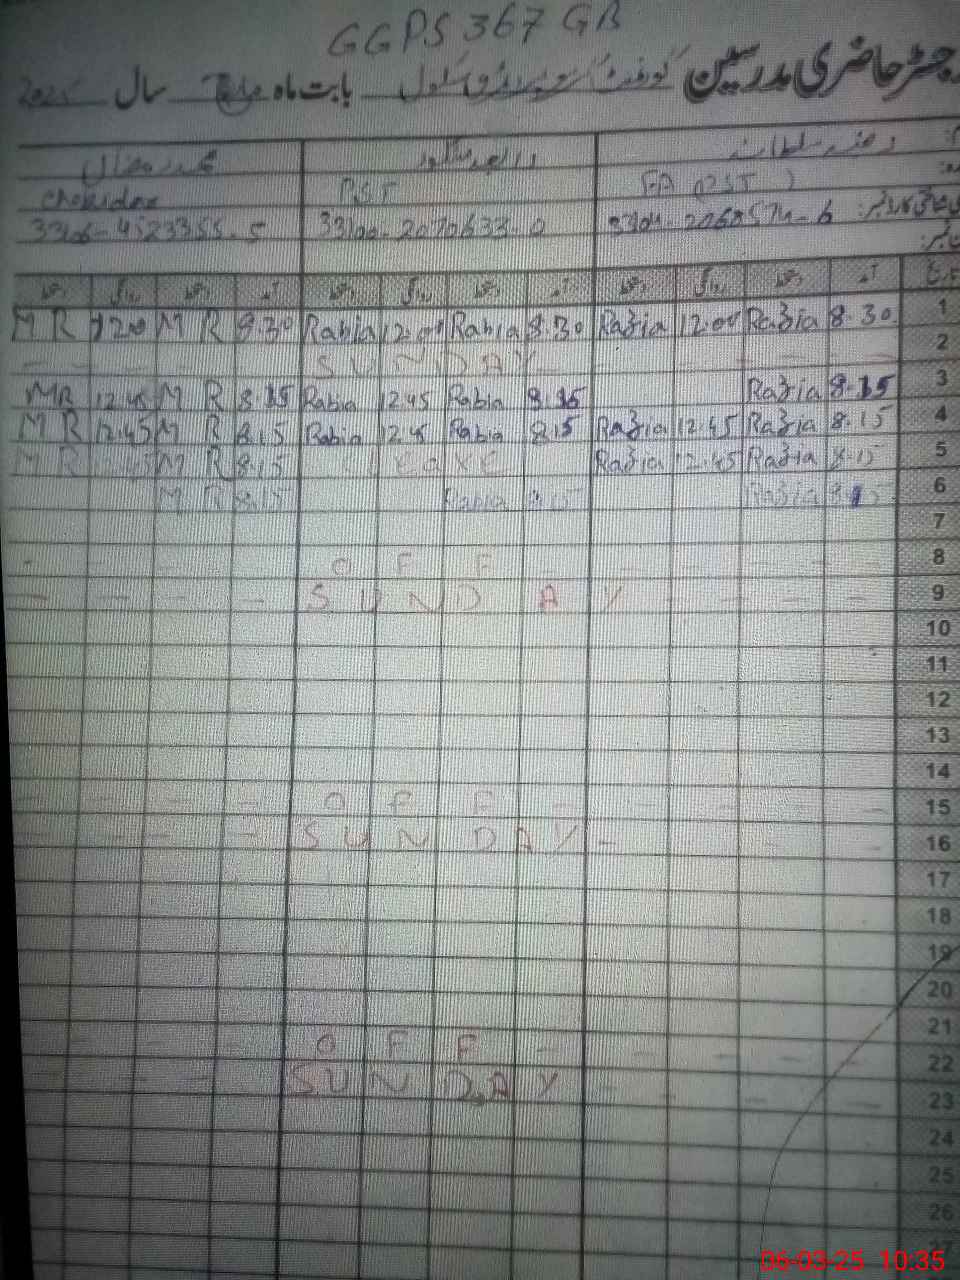 GGPS 367 GB
رجسٹر حاضری مدرسین گورنمنٹ سکول بابت ماہ مارچ سال 2025
رضیہ سلطانہ
chokidar PST (PST)
33100-2070633-0
دستخط روانگی دستخط آمد دستخط روانگی دستخط آمد دستخط روانگی دستخط آمد
M R 12.00 M R 8.30 Rabia 12.00 Rabia 8.30 Razia 12.00 Razia 8.30 1
- - - - SUNDAY - - - - 2
MR 12.45 M R 8.15 Rabia 12.45 Rabia 8.15 Razia 8.15 3
M R 12.45 M R 8.15 Rabia 12.45 Rabia 8.15 Razia 12.45 Razia 8.15 4
M R 12.45 M R 8.15 Razia 12.45 Razia 8.15 5
M R 8.15 Rabia 8.15 Razia 8.15 6
7
- - - - O F F - - - - - 8
- - - - S U N D A Y - - - 9
10
11
12
13
14
- - - - O F F - - - - - 15
- - - - S U N D A Y - 16
17
18
19
20
21
- - - O F F - - - - - 22
- - - SUNDAY - - - - 23
24
25
26
27
06-03-25 10:35